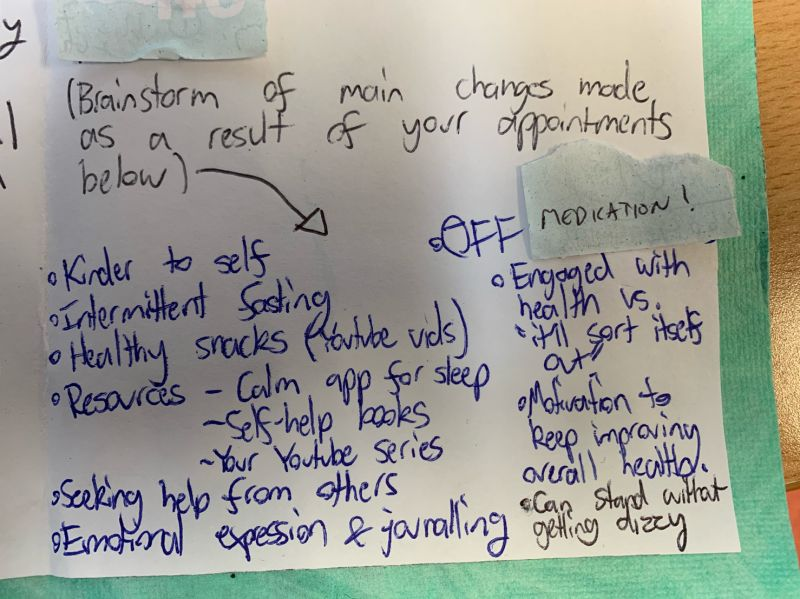 (Brainstorm of main changes made
as a result of your appointments
below)
• Kinder to self
• Intermittent fasting
• Healthy snacks (Youtube vids)
• Resources - Calm app for sleep
- Self-help books
- Your Youtube series
• Seeking help from others
• Emotional expession & journalling
• OFF MEDICATION!
• Engaged with
health vs.
"it'll sort itself
out"
• Motivation to
keep improving
overall health.
• Can stand without
getting dizzy